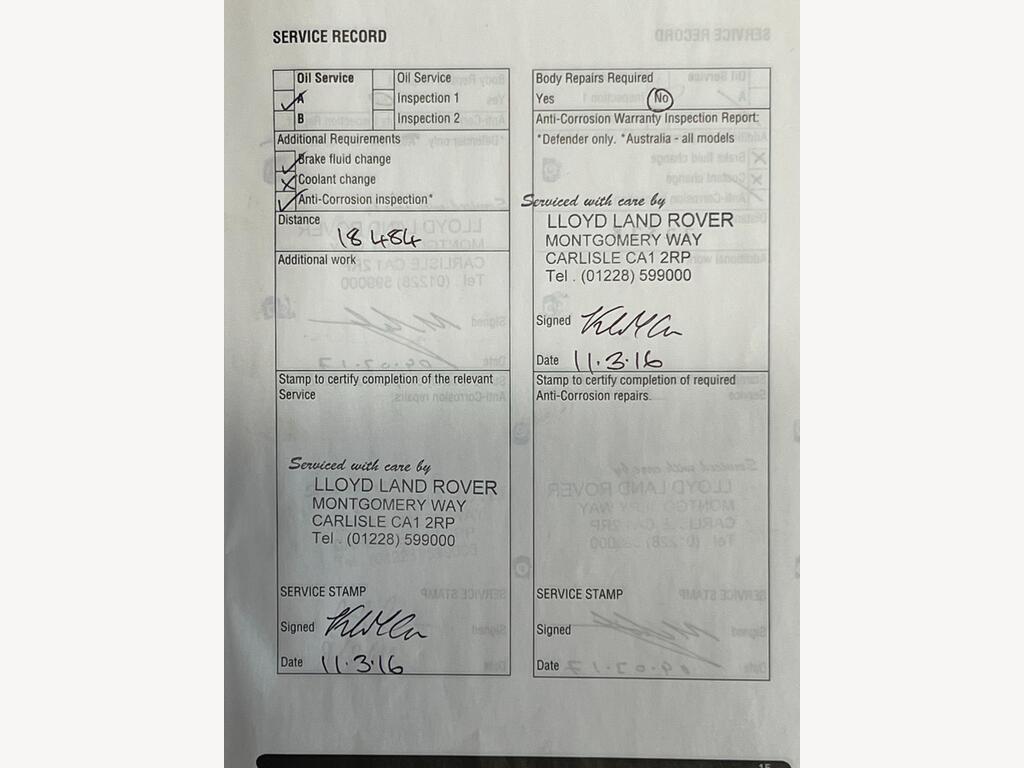 SERVICE RECORD
Oil Service
Oil Service
A
Inspection 1
B
Inspection 2
Additional Requirements
Brake fluid change
Coolant change
Anti-Corrosion inspection*
Distance
18 484
Additional work
Stamp to certify completion of the relevant
Service
Serviced with care by
LLOYD LAND ROVER
MONTGOMERY WAY
CARLISLE CA1 2RP
Tel . (01228) 599000
SERVICE STAMP
Signed
Date 11.3.16
Body Repairs Required
Yes No
Anti-Corrosion Warranty Inspection Report:
*Defender only. *Australia - all models
Serviced with care by
LLOYD LAND ROVER
MONTGOMERY WAY
CARLISLE CA1 2RP
Tel . (01228) 599000
Signed
Date 11.3.16
Stamp to certify completion of required
Anti-Corrosion repairs.
SERVICE STAMP
Signed
Date
15